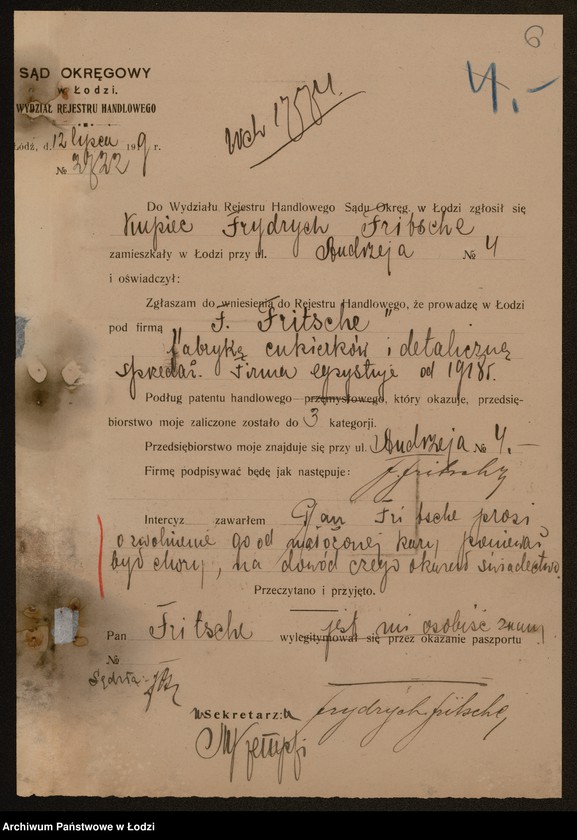 6
SĄD OKRĘGOWY
w Łodzi.
WYDZIAŁ REJESTRU HANDLOWEGO
4.-
Łódź, d. 12 lipca 1919 r.
№ 2722
Do Wydziału Rejestru Handlowego Sądu Okręg. w Łodzi zgłosił się
Kupiec Frydrych Fritsche
zamieszkały w Łodzi przy ul. Andrzeja № 4
i oświadczył:
Zgłaszam do wniesienia do Rejestru Handlowego, że prowadzę w Łodzi
pod firmą „F. Fritsche"
fabrykę cukierków i detaliczną
sprzedaż. Firma egzystuje od 1918 r.
Podług patentu handlowego przemysłowego, który okazuje, przedsię-
biorstwo moje zaliczone zostało do 3 kategorji.
Przedsiębiorstwo moje znajduje się przy ul. Andrzeja № 4.-
Firmę podpisywać będę jak następuje:
Intercyz zawarłem Pan Fritsche prosi
o zwolnienie go od nałożonej kary, ponieważ
był chory, na dowód czego okazał świadectwo.
Przeczytano i przyjęto.
Pan Fritsche wylegitymował się przez okazanie paszportu jest mi osobiście znany
№
Sędzia:
Sekretarz:
Frydrych Fritsche
Archiwum Państwowe w Łodzi